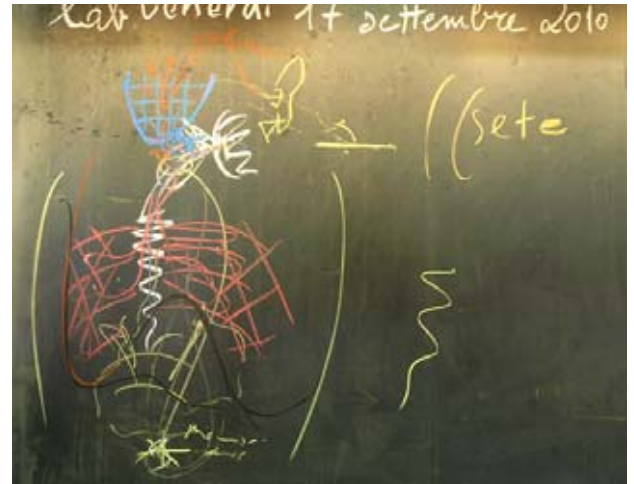 Lab venerdì 17 settembre 2010
((sete